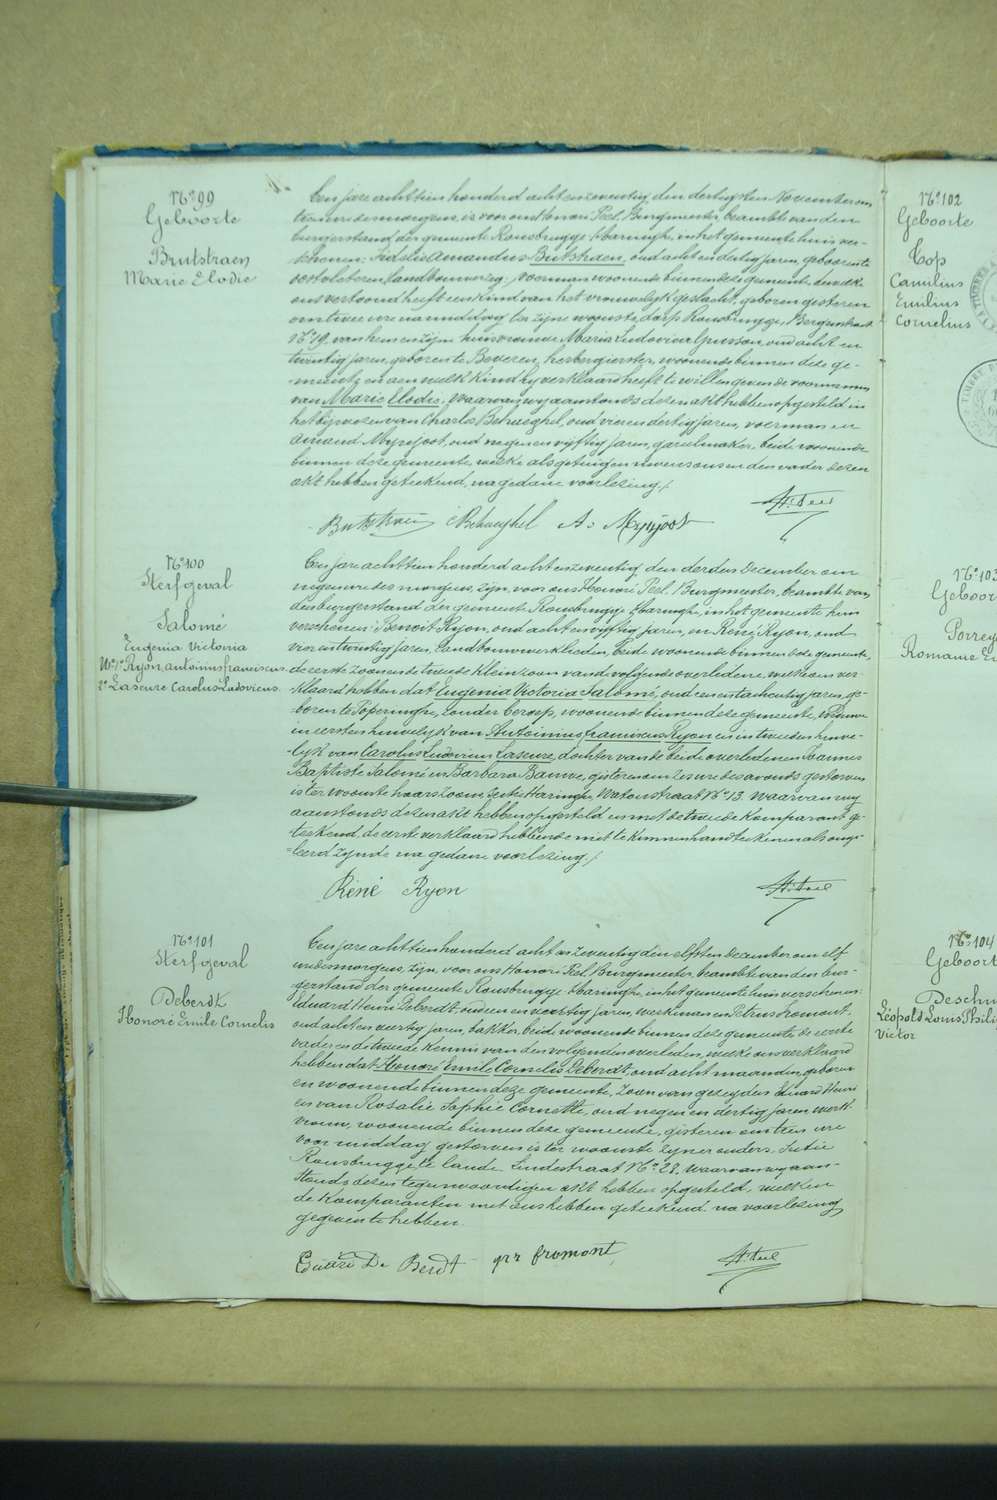 No 99
Geboorte
Butstraen
Marie Elodie
Een jare achttien honderd achtenzeventig, den dertigsten November om
tien ure des morgens, is voor ons Honoré Peel, Burgmeester, beambte van den
burgerstand der gemeente Rousbrugge-Haringhe, in het gemeentehuis ver-
schenen: Amandus Butstraen, oud achtendertig jaren, geboren te
landbouwer, voerman, woonende binnen deze gemeente, dewelke
ons vertoond heeft een kind van het vrouwelijk geslacht, geboren gisteren
om twee ure namiddag ter zijne woonste, dorp Rousbrugge, Bergenstraat
No 19, van hem en zijne huisvrouw Maria Ludovica oud acht en
twintig jaren, geboren te Beveren, herbergierster, woonende binnen deze ge-
meente, en aan welk kind hij verklaard heeft te willen geven de voornamen
van Marie Elodie. Waarvan wij aanstonds dezen akt hebben opgesteld in
het bijwezen van Charles Behaeghel, oud vierendertig jaren, voerman en
Amand Myngoot, oud negenenvijftig jaren, garelmaker, beide woonende
binnen deze gemeente, welke als getuigen nevens ons en den vader dezen
akt hebben geteekend, na gedane voorlezing./
Butstraen C Behaeghel A: Myngoot H: Peel
No 100
Sterfgeval
Salomé
Eugenia Victoria
We 1o Ryon, antoinius franciscus
2o Lascure Carolus Ludovicus
Een jare achttien honderd achtenzeventig, den derden December om
negen ure des morgens, zijn, voor ons Honoré Peel, Burgmeester, beambte van
den burgerstand der gemeente Rousbrugge-Haringhe, in het gemeente huis
verschenen: Benoit Ryon, oud achtenvijftig jaren, en René Ryon, oud
vierentwintig jaren, landbouwers beide woonende binnen deze gemeente,
de eerste zoon en de tweede kleinzoon van de volgende overledene, welke ons ver-
klaard hebben dat Eugenia Victoria Salomé, oud eenentachentig jaren, ge-
boren te Poperinghe, zonder beroep, woonende binnen deze gemeente, Weduwe
in eersten huwelijk van Antoinius franciscus Ryon en in tweeden huwe-
lijk van Carolus Ludovicus Lascure, dochter van de beide overledenen Joannes
Baptiste Salomé en Barbara Bauwe, gisteren om zes ure des avonds gestorven
is ter woonste haars zoons, sectie Haringhe, Watoustraat No 13. Waarvan wij
aanstonds dezen akt hebben opgesteld en met de tweede komparant ge-
teekend, de eerste verklaard hebbende niet te kunnen handteekenen als onge-
leerd zijnde na gedane voorlezing./
René Ryon H: Peel
No 101
Sterfgeval
Deberdt
Honoré Emile Cornelis
Een jare achttien honderd achtenzeventig den elften December om elf
ure des morgens, zijn, voor ons Honoré Peel, Burgmeester, beambte van den bur-
gerstand der gemeente Rousbrugge-Haringhe, in het gemeentehuis verschenen:
Eduard Henri Deberdt, oud eenenveertig jaren, werkman en Petrus Fromont,
oud achtenveertig jaren, bakker, beide woonende binnen deze gemeente, de eerste
vader en de tweede kennis van den volgenden overleden, welke ons verklaard
hebben dat Honoré Emile Cornelis Deberdt, oud acht maanden, geboren
en woonende binnen deze gemeente, Zoon van gezeyden Eduard Henri
en van Rosalie Sophie Cornette, oud negen en dertig jaren werk-
vrouw, woonende binnen deze gemeente, gisteren om tien ure
voormiddag gestorven is ter woonste zijner ouders, Sectie
Rousbrugge te lande, Lindestraat No 28. Waarvan wij aan-
stonds dezen tegenwoordigen akt hebben opgesteld, welken
de komparanten met ons hebben geteekend na voorlezing
gegeven te hebben
Eduard De Berdt prr fromont H: Peel
No 102
Geboorte
Top
Camilius
Emilius
Cornelius
No 103
Romanie
No 104
Léopold Louis
Victor